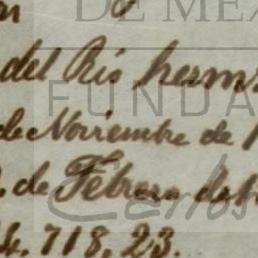 DE MEX
del Rio herm
FUNDA
de Noviembre de 1
de Febrero de
Carlos
4.718,23.